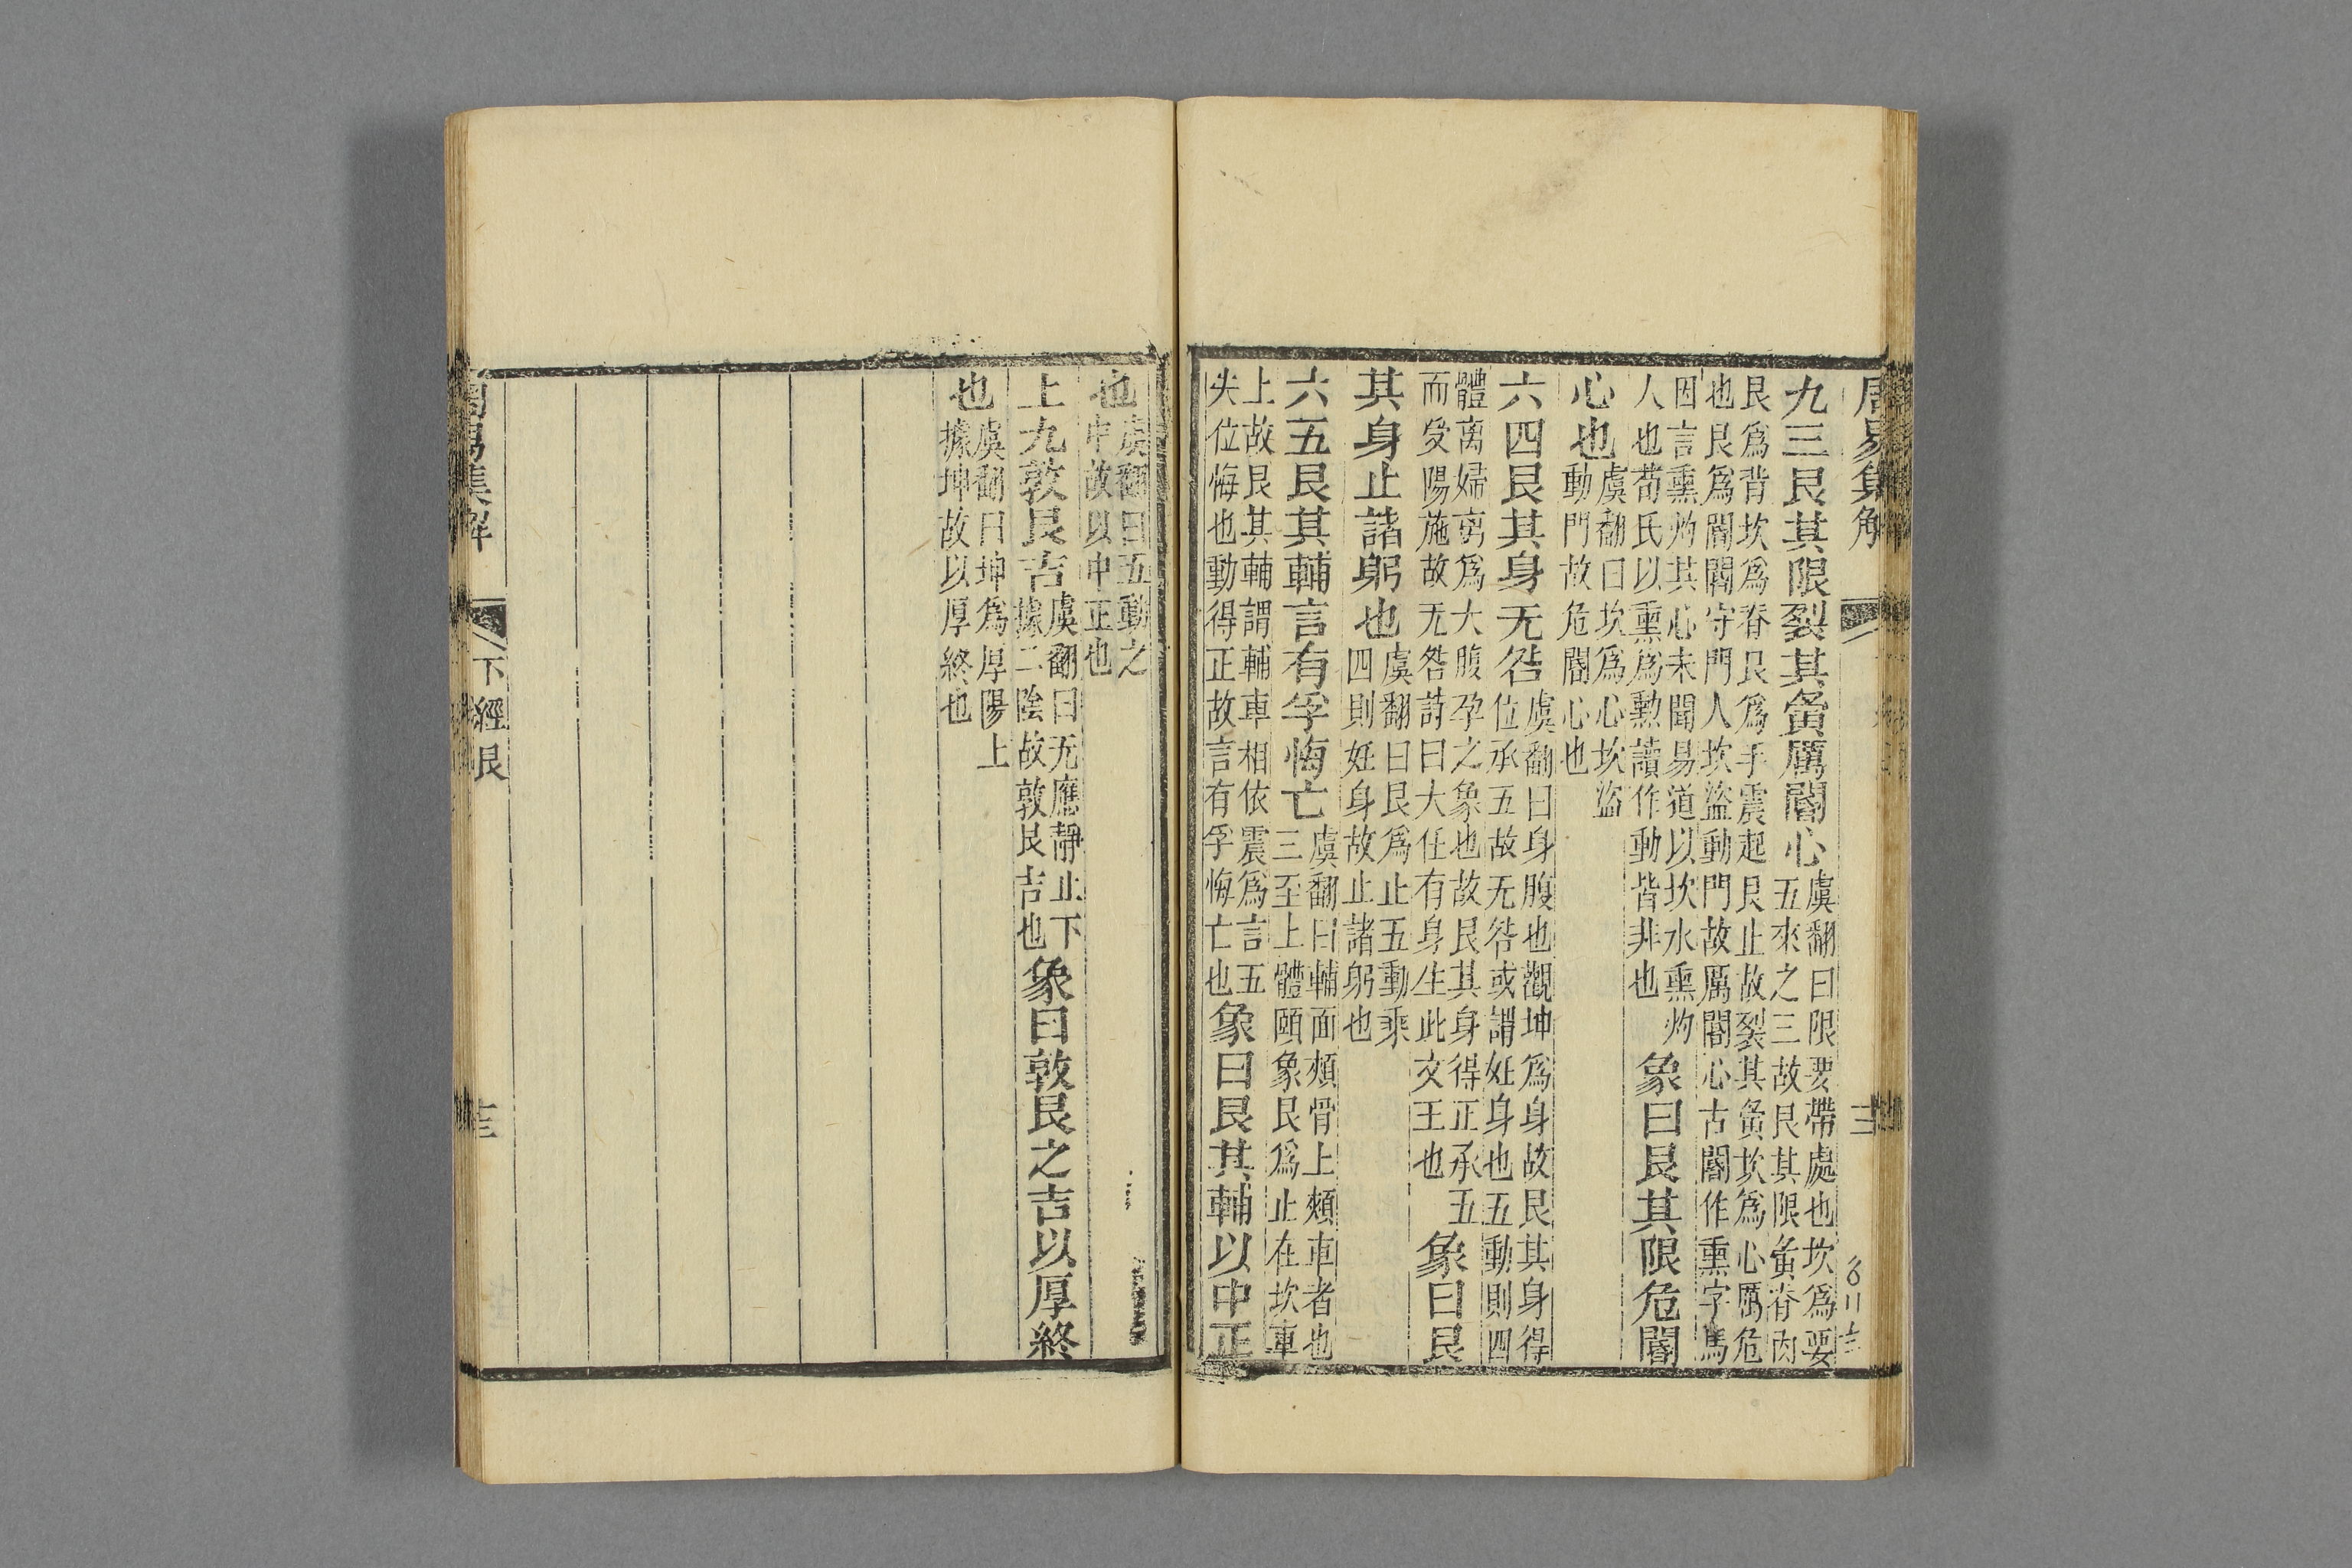 周易集解
九三艮其限裂其夤厲閽心虞翻曰限要帶處也坎爲要
五來之三故艮其限夤脊肉
艮爲背坎爲脊艮爲手震起艮止故裂其夤坎爲心厲危
也艮爲閽閽守門人坎盜動門故厲閽心古閽作熏字馬
因言熏灼其心未聞易道以坎水熏灼
人也荀氏以熏爲勳讀作動皆非也象曰艮其限危閽
心也虞翻曰坎爲心坎盜
動門故危閽心也
六四艮其身无咎虞翻曰身腹也觀坤爲身故艮其身得
位承五故无咎或謂妊身也五動則四
體离婦离爲大腹孕之象也故艮其身得正承五
而受陽施故无咎詩曰大任有身生此文王也象曰艮
其身止諸躬也虞翻曰艮爲止五動乘
四則妊身故止諸躬也
六五艮其輔言有孚悔亡虞翻曰輔面頰骨上頰車者也
三至上體頤象艮爲止在坎車
上故艮其輔謂輔車相依震爲言五
失位悔也動得正故言有孚悔亡也象曰艮其輔以中正
也虞翻曰五動之
中故以中正也
上九敦艮吉虞翻曰无應靜止下
據二陰故敦艮吉也象曰敦艮之吉以厚終
也虞翻曰坤爲厚陽上
據坤故以厚終也
周易集解
下經艮